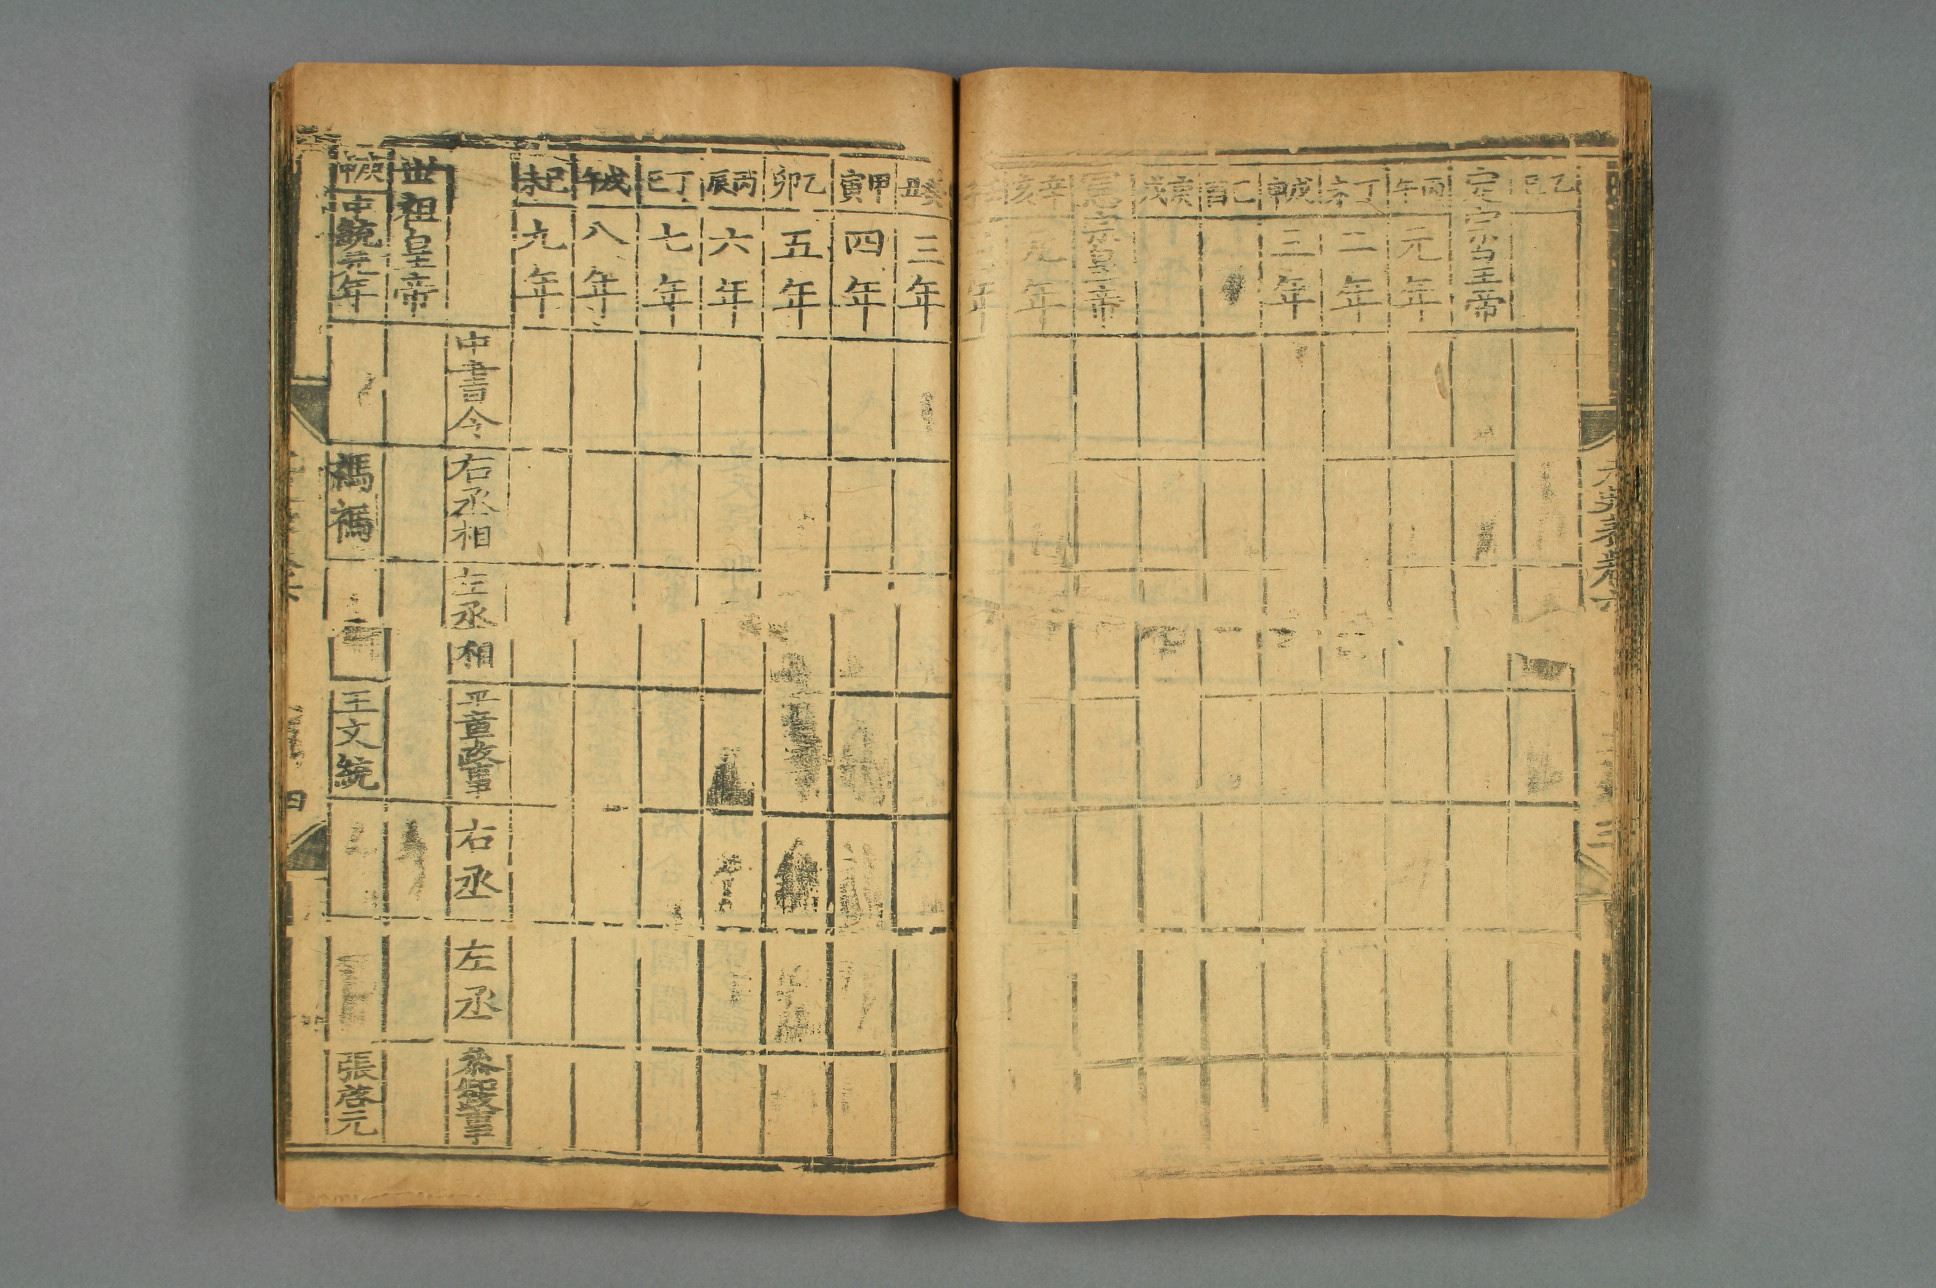 乙巳
定宗皇帝
丙午 元年
丁未 二年
戊申 三年
己酉
庚戌
憲宗皇帝
辛亥 元年
二年
癸丑 三年
甲寅 四年
乙卯 五年
丙辰 六年
丁巳 七年
戊午 八年
己 九年
中書令 右丞相 左丞相 平章政事 右丞 左丞 參知政事
世祖皇帝
庚申 中統元年 禡禡 王文統 張啓元
四